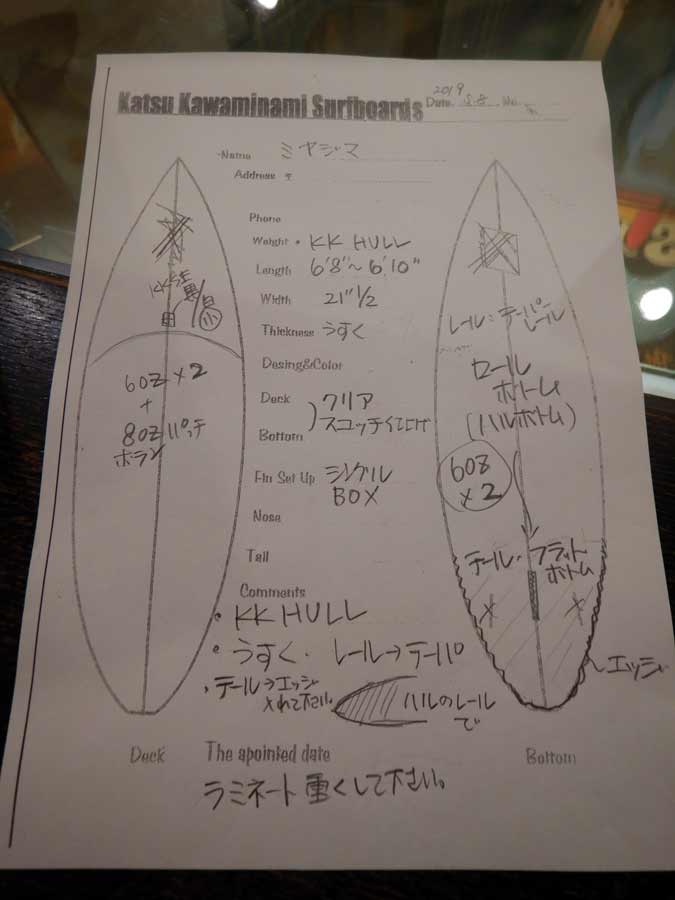 Katsu Kawaminami Surfboards
2019
Date. 5.8 No.
Name ミヤジマ
Address 〒
Phone
Weight • KK HULL
Length 6'8"〜6'10"
Width 21"1/2
Thickness うすく
Desing&Color
Deck クリア
Bottom スコッチ仕上げ
Fin Set Up シングル
BOX
Nose
Tail
Comments
• KK HULL
• うすく. レール→テーパ
テール→エッジ
入れて下さい
ハルのレール
で
Deck
The apointed date
ラミネート重くして下さい。
Bottom
6oz×2
+
8ozパッチ
ボラン
レール:テーパー
レール
ロール
ボトム
(ハルボトム)
6oz
×2
テール・フラット
ボトム
エッジ